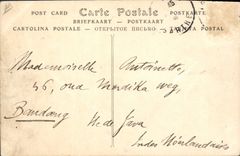 POST CARD Carte Postale POSTKARTE
BRIEFKAART — POSTKAART
CARTOLINA POSTALE — ОТКРЫТОЕ ПИСЬМО — POSTAL
Mademoiselle Antoinette,
56, oud Mardika weg,
Bandoeng Ile de Java
Indes Néerlandaises